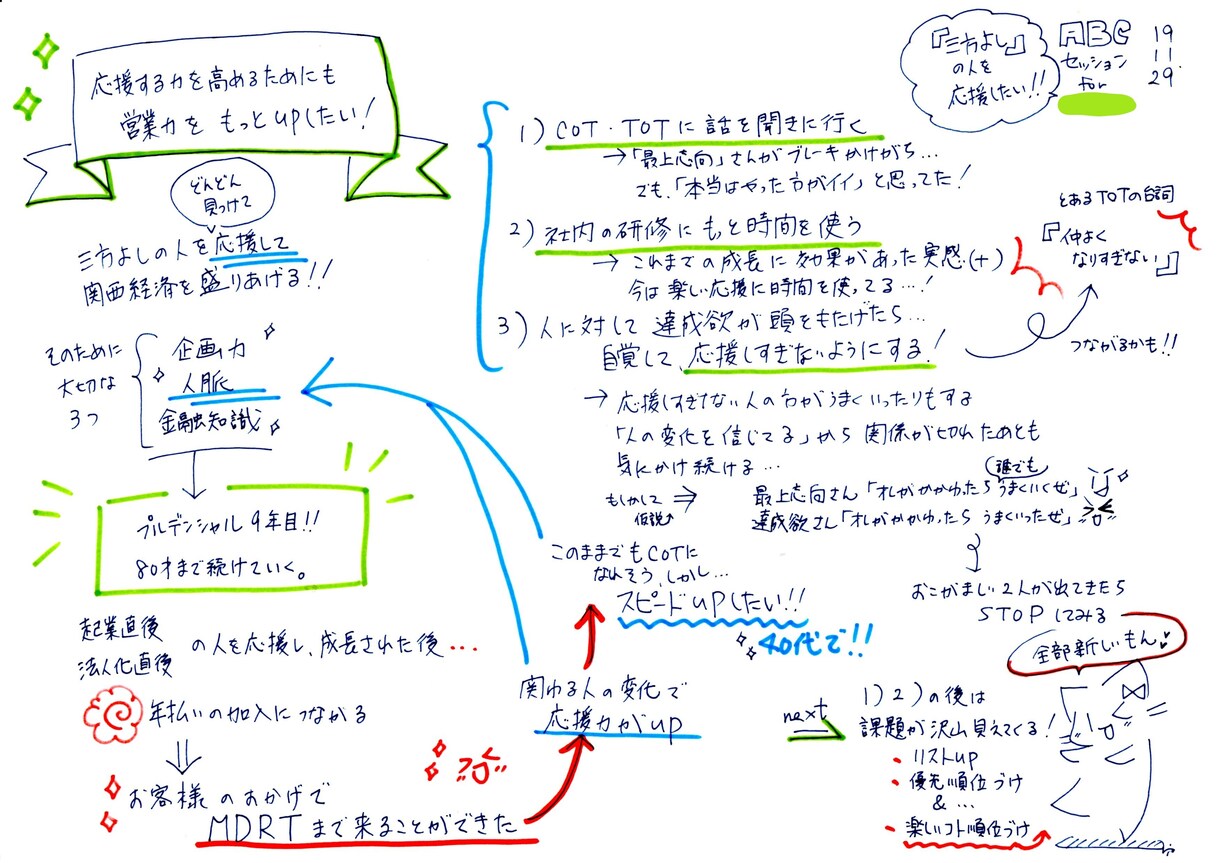 応援する力を高めるためにも
営業力を もっとupしたい!
どんどん
見つけて
三方よしの人を応援して
関西経済を盛りあげる!!
そのために
大切な
3つ
企画力
人脈
金融知識
プルデンシャル9年目!!
80才まで続けていく。
起業直後
法人化直後
の人を応援し、成長された後...
年払いの加入につながる
お客様のおかげで
MDRTまで来ることができた
関わる人の変化で
応援力がup
このままでもCOTに
なれそう、しかし...
スピードupしたい!!
40代で!!
『三方よし』
の人を
応援したい!!
ABC
セッション
for
19
11
29.
1) COT・TOTに話を聞きに行く
→「最上志向」さんがブレーキかけがち...
でも、「本当はやった方がイイ」と思ってた!
2) 社内の研修にもっと時間を使う
→ これまでの成長に効果があった実感(+)
今は楽しい応援に時間を使ってる...!
3) 人に対して達成欲が頭をもたげたら...
自覚して、応援しすぎないようにする!
とあるTOTの台詞
『仲よく
なりすぎない』
つながるかも!!
→ 応援しすぎてない人の方がうまくいったりもする
「人の変化を信じてる」から関係が切れたあとも
気にかけ続ける...
もしかして
仮説↑
⇒
誰でも
最上志向さん「オレがかかわったらうまくいくぜ」
達成欲さん「オレがかかわったら うまくいったぜ」
おこがましい2人が出てきたら
STOPしてみる
全部新しいもん♥
next
1) 2) の後は
課題が沢山見えてくる!
・リストup
・優先順位づけ
& ...
・楽しいコト順位づけ